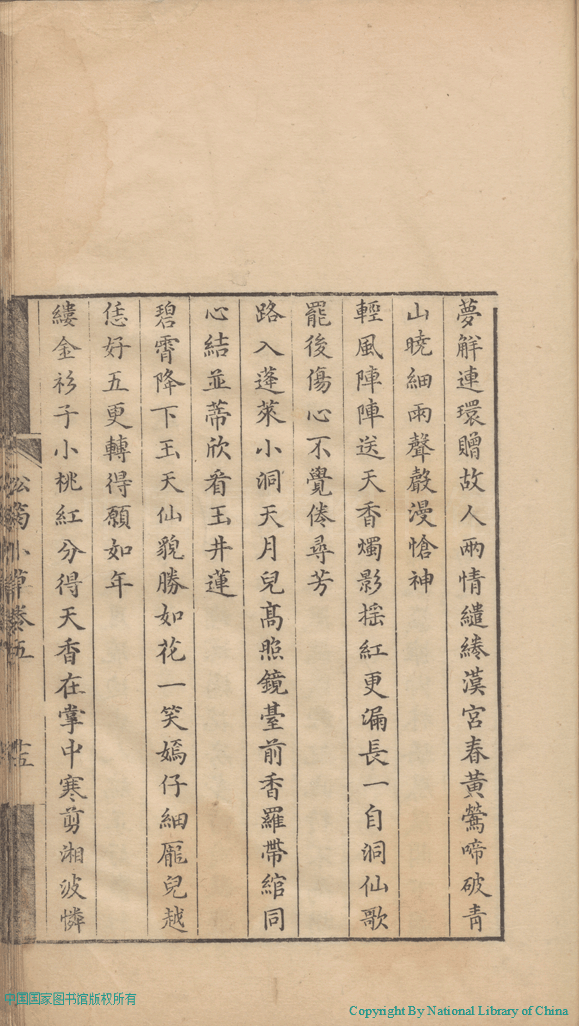 夢解連環贈故人兩情繾綣漢宮春黃鶯啼破青
山曉細雨聲聲漫愴神
輕風陣陣送天香燭影搖紅更漏長一自洞仙歌
罷後傷心不覺倦尋芳
路入蓬萊小洞天月兒高照鏡臺前香羅帶綰同
心結並蒂欣看玉井蓮
碧霄降下玉天仙貌勝如花一笑嫣仔細龐兒越
恁好五更轉得願如年
縷金衫子小桃紅分得天香在掌中寒剪湘波憐
松菊小草卷五
十五
中国国家图书馆版权所有
Copyright By National Library of China